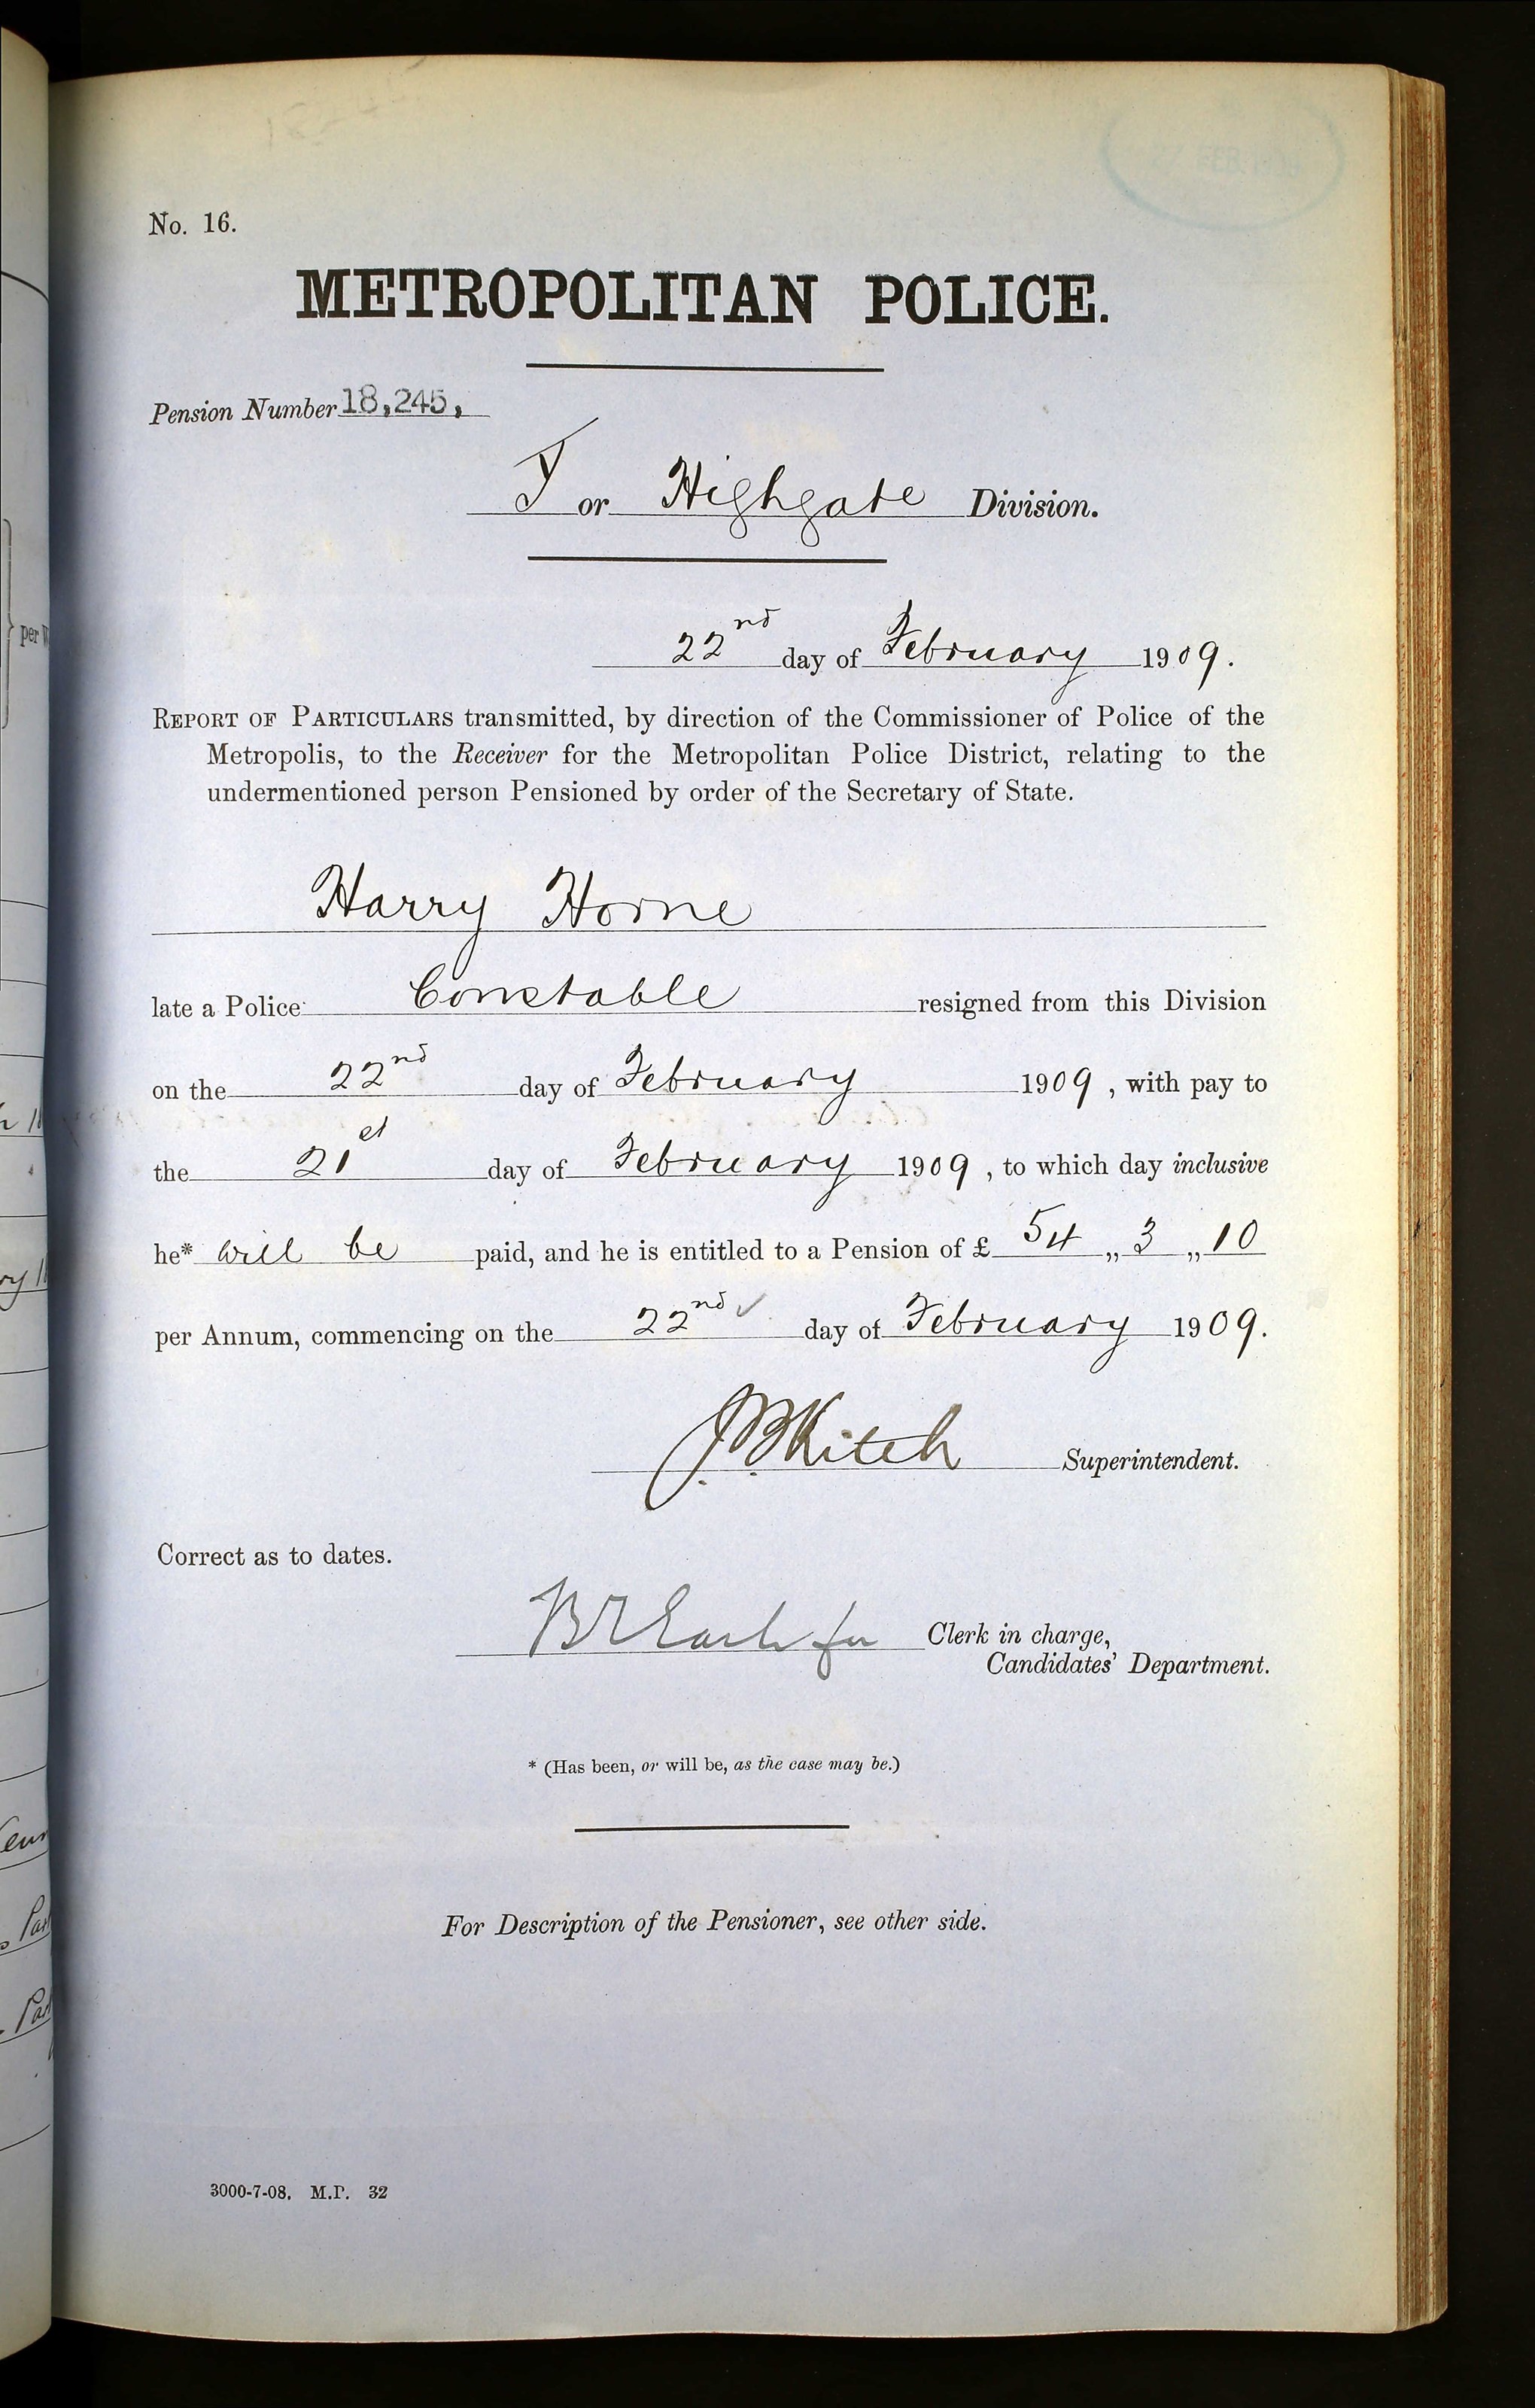 27 FEB 1909
No. 16.
METROPOLITAN POLICE.
Pension Number 18,245,
Y or Highgate Division.
22nd day of February 1909.
REPORT OF PARTICULARS transmitted, by direction of the Commissioner of Police of the
Metropolis, to the Receiver for the Metropolitan Police District, relating to the
undermentioned person Pensioned by order of the Secretary of State.
Harry Horne
late a Police Constable resigned from this Division
on the 22nd day of February 1909, with pay to
the 21st day of February 1909, to which day inclusive
he* will be paid, and he is entitled to a Pension of £ 54 „ 3 „ 10
per Annum, commencing on the 22nd day of February 1909.
J.B. Kitch Superintendent.
Correct as to dates.
for Clerk in charge,
Candidates' Department.
* (Has been, or will be, as the case may be.)
For Description of the Pensioner, see other side.
3000-7-08. M.P. 32
per